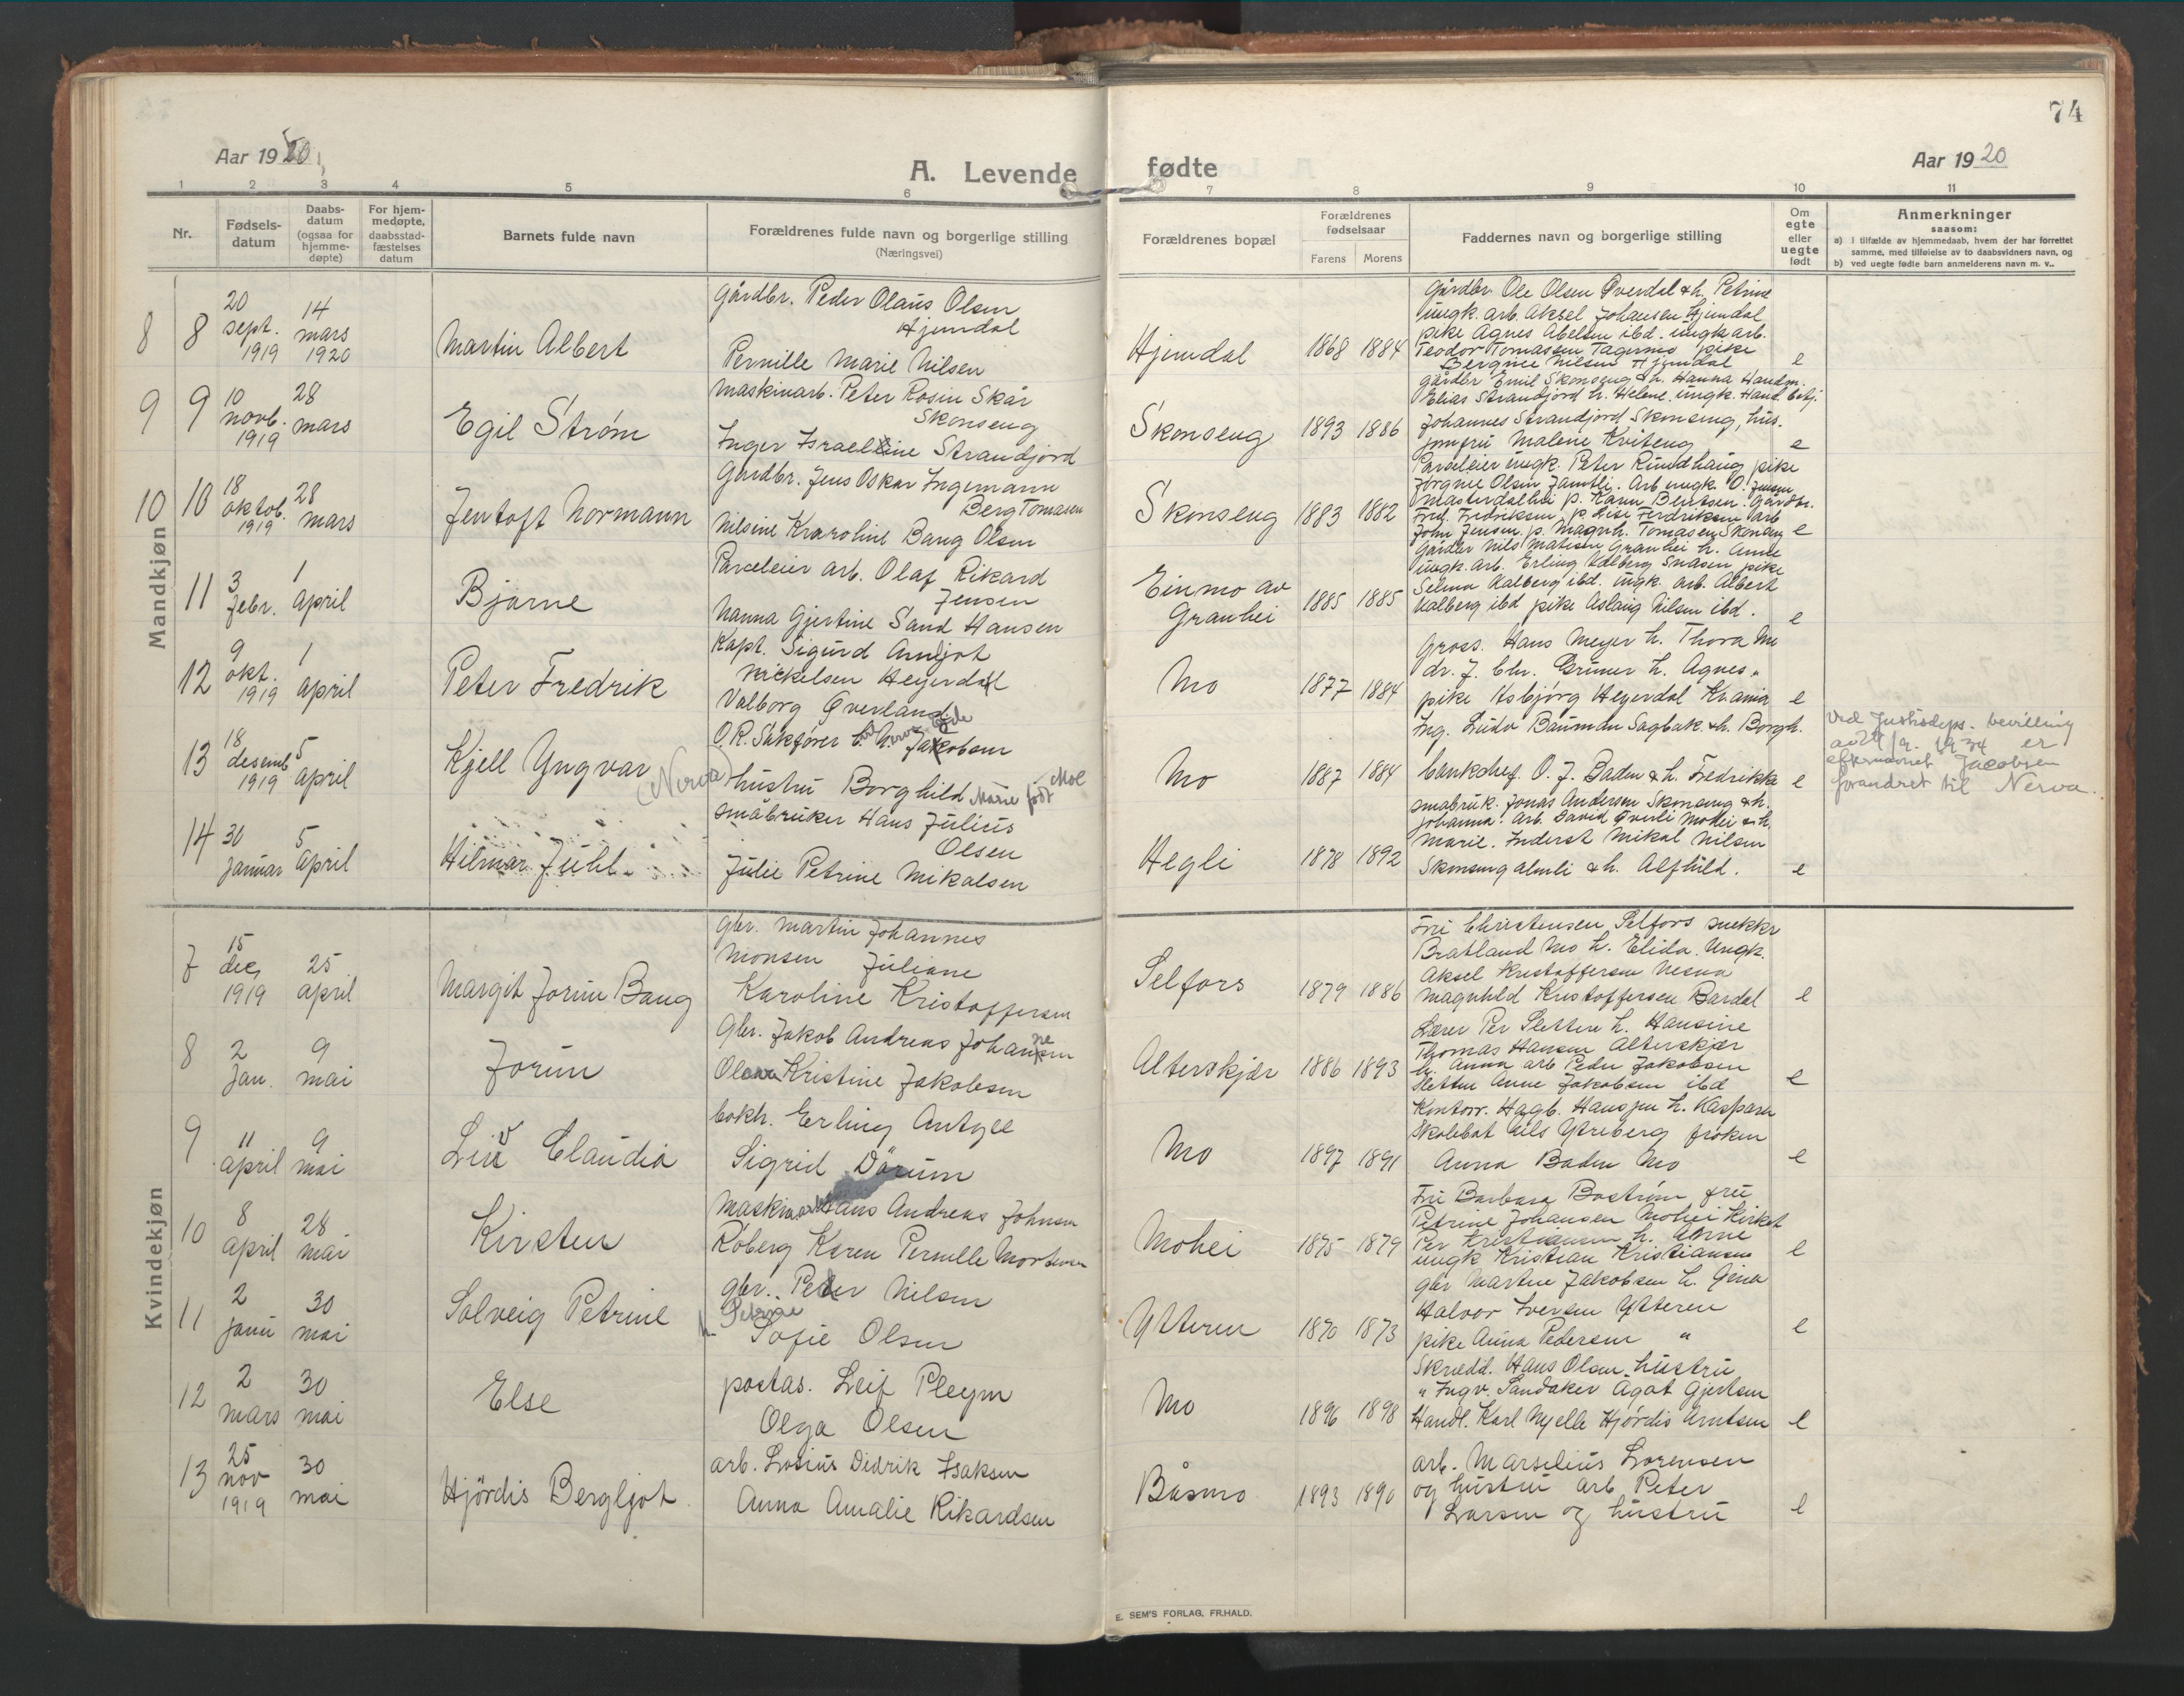 74
Aar 1920
A. Levende fødte
Aar 1920
1 2 3 4 5 6 7 8 9 10 11
Nr.
Fødsels-
datum
Daabs-
datum
(ogsaa for
hjemme-
døpte)
For hjem-
medøpte,
daabsstad-
fæstelses
datum
Barnets fulde navn
Forældrenes fulde navn og borgerlige stilling
(Næringsvei)
Forældrenes bopæl
Forældrenes
fødselsaar
Farens Morens
Faddernes navn og borgerlige stilling
Om
egte
eller
uegte
født
Anmerkninger
saasom:
a) i tilfælde av hjemmedaab, hvem der har forrettet
samme, med tilføielse av to daabsvidners navn, og
b) ved uegte fødte barn anmelderens navn m. v..
Mandkjøn
8 8
20
sept.
1919
14
mars
1920
Martin Albert
Gårdbr. Peder Olaus Olsen
Hjemdal
Pernille Marie Nilsen
Hjemdal
1868 1884
Gårdbr. Ole Olsen Øverdal & h. Petrine
ungk. arb. Aksel Johansen Hjemdal
pike Agnes Abelsen ibd. ungk arb.
Teodor Tomassen Tagermo pike
Nilsen Hjemdal
e
9 9
10
novb.
1919
28
mars
Egil Strøm
Maskinarb. Peter Rosin Skår
Skonseng
Inger Israeline Strandjord
Skonseng
1893 1886
gårdbr Emil Skonseng & h. Hanna Handm.
Elias Strandjord h. Helene. ungk. Hand. betj.
Johannes Strandjord Skonseng, hus.
jomfru Malene Kviteng
e
10 10
18
oktob.
1919
28
mars
Jentoft Normann
Gardbr. Jens Oskar Ingemann
Berg Tomasen
Nilsine Kraroline Bang Olsen
Skonseng
1883 1882
Parseleier ungk. Peter Rundhaug pike
Olsen Jamtli. Arb ungk. O. Jensen
p. Karen Bentsen. Gårdbr.
Fred. Fredriksen p. Lise Fredriksen arb
John Jensen. p. Magnh. Tomasen Skonseng
e
11
3
febr.
1
april
Bjarne
Parseleier arb. Olaf Rikard
Jensen
Nanna Gjertine Sand Hansen
Einmo av
Granhei
1885 1885
Gårdbr Nils Matisen Granhei h. Anne
ungk. arb. Erling Valberg Snasen pike
Selma Valberg ibd. ungk. arb. Albert
Valberg ibd pike Aslaug Nilsen ibd.
e
12
9
okt.
1919
1
april
Peter Fredrik
Kapt. Sigurd Arnljot
Mickelsen Heyerdahl
Valborg Øverland
Mo
1877 1884
Gross. Hans Meyer h. Thora Mo
dr. J. Chr. Gruner h. Agnes "
pike Asbjørg Heyerdal Kr.ania
e
13
18
desemb
1919
5
april
Kjell Yngvar
(Nerva)
O. R. Sakfører Jakobsen
hustru Borghild Marie født Moe
Mo
1887 1884
Ing. Ludv Bauman Sagbak & h. Borgh.
bankchef O. J. Baden & h. Fredrikke
e
Ved Justisdeps. bevilling
av 24/9. 1934 er
efternavnet Jacobsen
forandret til Nerva.
14
30
januar
5
april
Hilmar Juhl.
småbruker Hans Julius
Olsen
Julie Petrine Mikalsen
Hegli
1878 1892
småbruk. Jonas Andersen Skonseng & h.
Johanna. Arb David Øverli Mohei & h.
Marie. Inderst Mikal Nilsen
Skonseng Almli & h. Alfhild.
e
Kvindekjøn
7
15
des
1919
25
april
Margit Jorun Baug
gbr. Martin Johannes
Monsen Juliane
Karoline Kristoffersen
Selfors
1879 1886
Fru Christensen Selfors snekkr
Bratland Mo h. Elida. Ungk.
Aksel Kristoffersen Nesna
Magnhild Kristoffersen Bardal
e
8
2
Jan.
9
mai
Jorun
Gbr. Jakob Andreas Johansen
Kristine Jakobsen
Alterskjær
1886 1893
Lærer Per Sletten h. Hansine
Thomas Hansen Alterskjær
h. Anna arb Peder Jakobsen
Sletten Anne Jakobsen ibd
e
9
11
april
9
mai
Liv Claudia
bokh. Erling Antyee
Sigrid Dørum
Mo
1897 1891
Kontorr. Hagb. Hansjen h. Kaspara
Skolebat Nils Ytreberg frøken
Anna Baden Mo
e
10
8
april
28
mai
Kirsten
Maskinarb Hans Andreas Johnsen
Røberg Karen Pernille Mortensen
Mohei
1875 1879
Fru Barbara Bostrøm fru
Petrine Johansen Mohei Kirket
Per Kristiansen h. Arne
ungk Kristian Kristiansen
e
11
2
janu
30
mai
Solveig Petrine
gbr. Peder Nilsen
Petrine
Sofie Olsen
Ytteren
1870 1873
gbr Martin Jakobsen h. Gina
Halvor Iversen Ytteren
pike Anna Pedersen "
e
12
2
mars
30
mai
Else
postas. Leif Pleym
Olga Olsen
Mo
1896 1898
Skrædd. Hans Olsen hustru
" Ingv. Sandaker Agot Gjertsen
Handl. Karl Nyelle Hjørdis Arntsen
e
13
25
nov
1919
30
mai
Hjördis Bergljot
arb. Losius Didrik Isaksen
Anna Amalie Rikardsen
Båsmo
1893 1890
arb. Marselius Lorensen
og hustru arb Peter
Larsen og hustru
e
E. SEM'S FORLAG, FR.HALD.